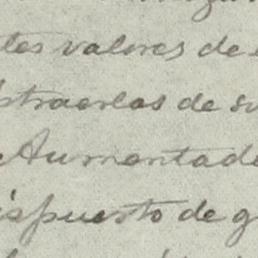 tes valores de
straerlas de su
Aumentado
ispuesto de g